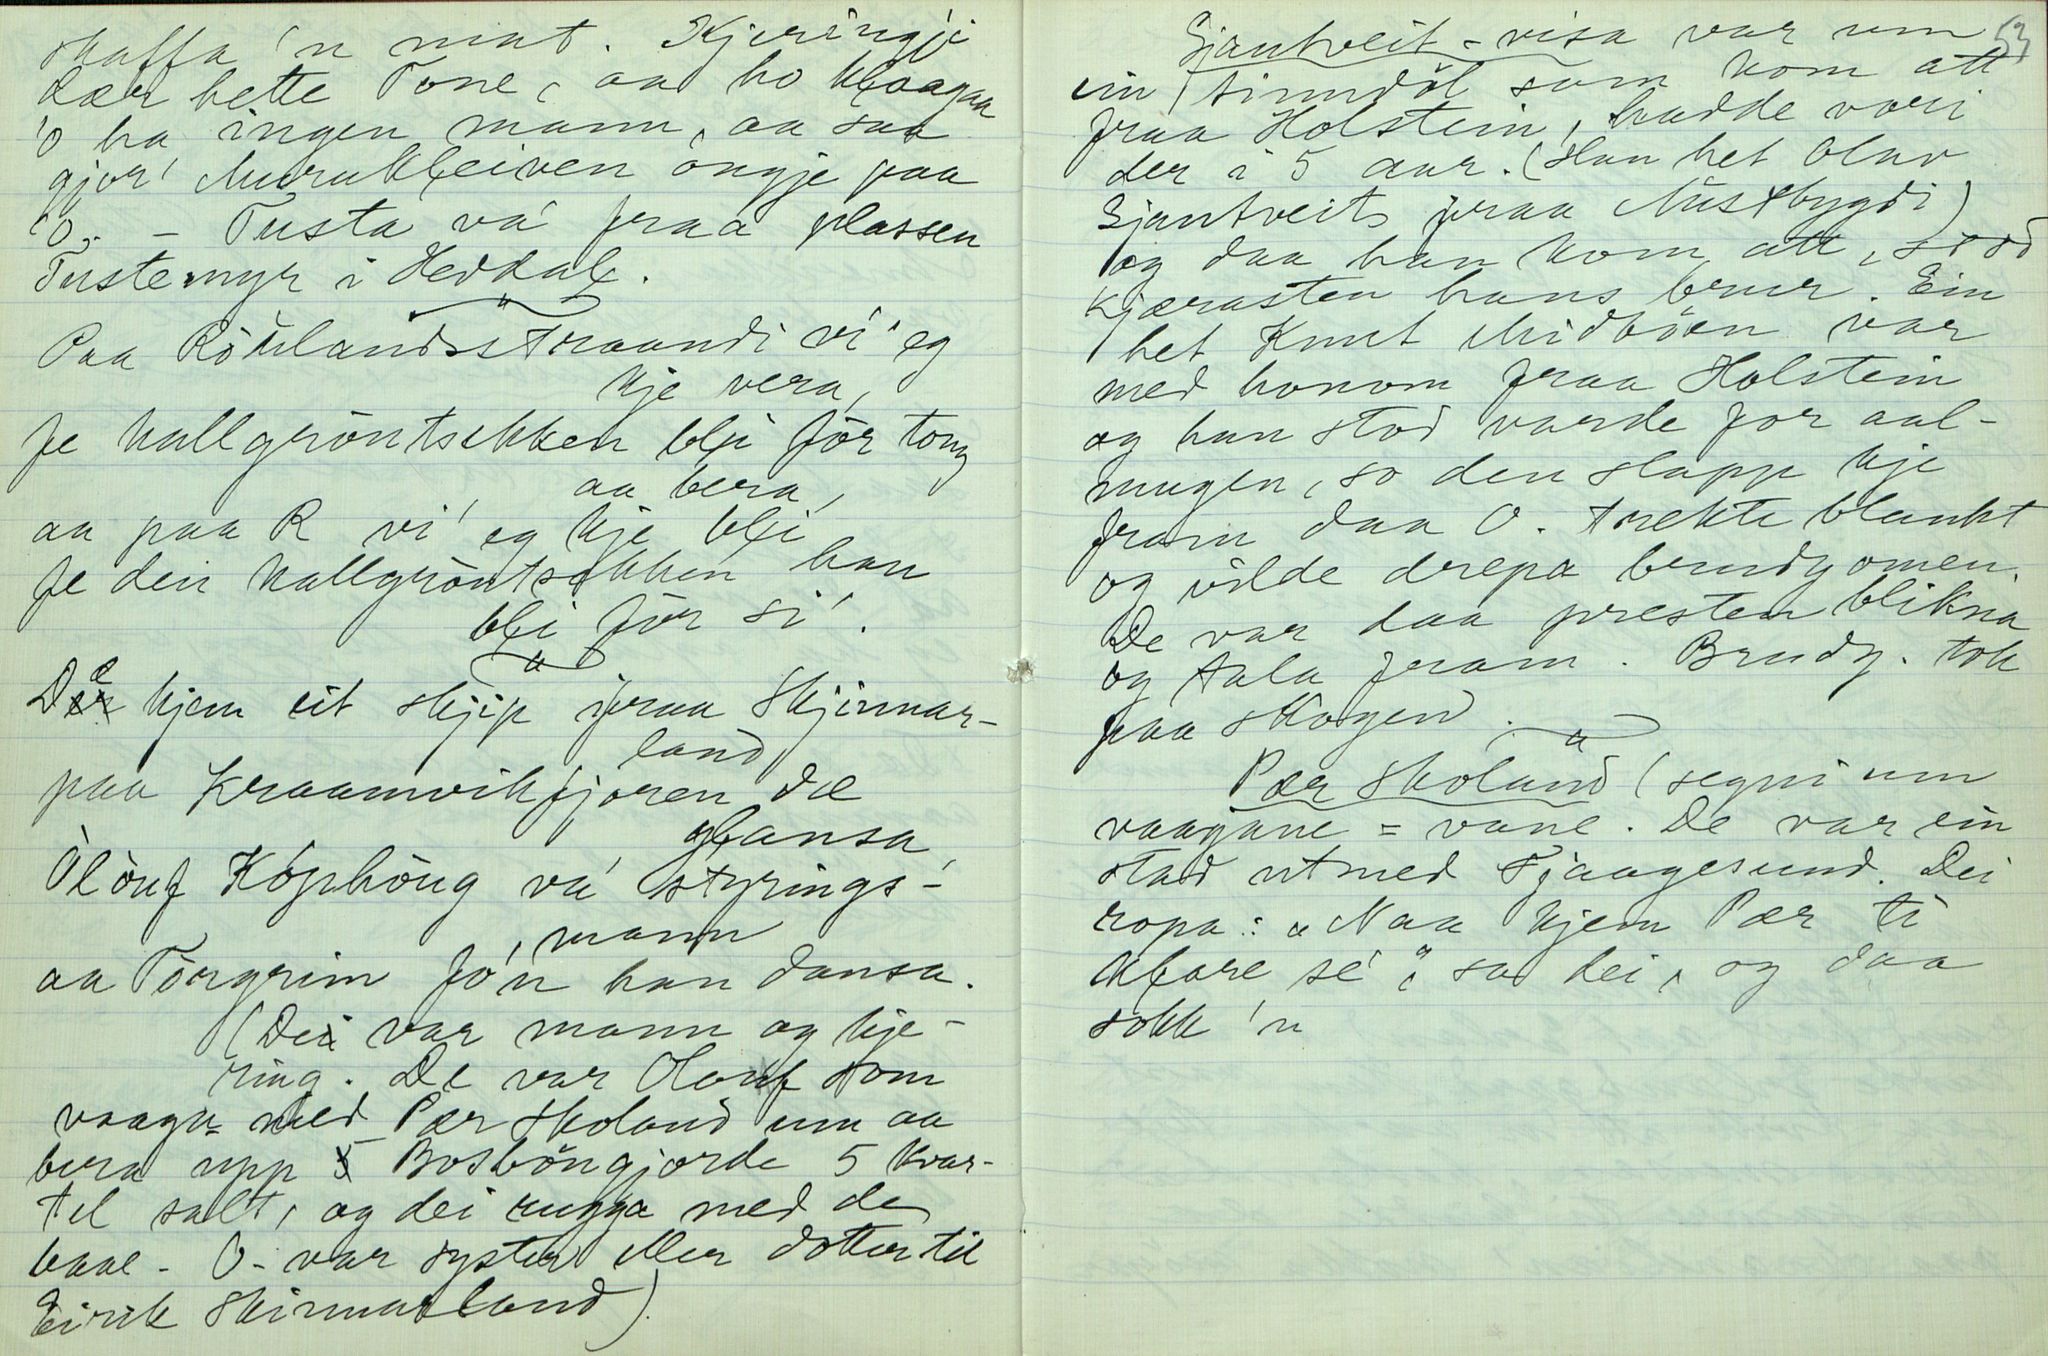 skaffa 'n mat. Kjeringji
dær hette Tone, aa ho klaaga
'o ha ingen mann, aa saa
gjor' Murukleiven ongje paa
'o. – Tusta va' fraa plassen
Tustemyr i Heddal.
"
Paa Röulandsstraandi vi' eg
kje vera,
fe kallgröntsekken bli för tong
aa bera,
aa paa R vi' eg kje bli
fe dei kallgröntsekken han
bli för si'.
"
De kjem eit skjip fraa Skjinnar-
land
paa Kraamvikfjoren dæ
glansa,
Ölöuf Köphöug va' styrings-
mann
aa Torgrim fo'n han dansa.
(Dei var mann og kje-
ring. De var Olouf som
vaaga med Pær Skoland um aa
bera upp Bosböngjorde 5 kvar-
til salt, og dei rugga med de
baae. O. var syster eller dotter til
Eirik Skinnarland).
53
Gjantveit-visa var um
ein tinndöl som kom att
fraa Holstein, hadde vori
der i 5 aar. (Han het Olav
Gjantveit fraa Austbygdi)
og daa han kom att, stod
kjærasten hans brur. Ein
het Knut Midböen var
med honom fraa Holstein
og han stod varde for aal-
mugen, so den slapp kje
fram daa O. trekte blankt
og vilde drepa brudgomen.
De var daa presten blikna
og tala fram. Brudg. tok
paa skogen.
"
Pær Skoland (segni um
vaagane = vane. De var ein
stad utmed Fjaagesund. Dei
ropa: "Naa kjem Pær ti
klare se'", sa dei, og daa
sokk 'n